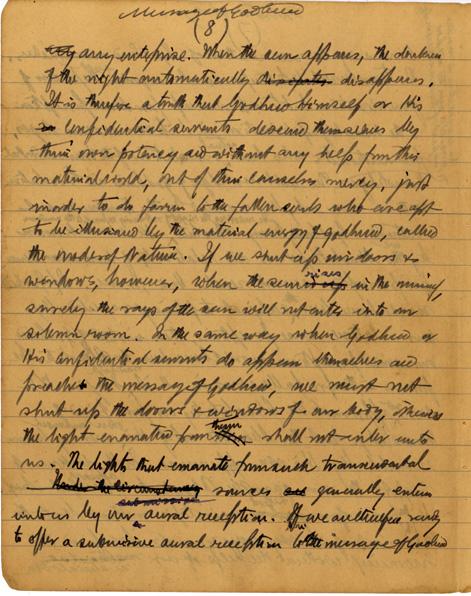 Message of Godhead
(8)
any enterprise. When the sun appears, the darkness
of the night automatically dissipates disappears.
It is therefore a truth that Godhead Himself or His
confidential servants descend themselves by
their own potency and without any help from this
material world, out of their causeless mercy, just
in order to do favour to the fallen souls who are apt
to be illusioned by the material energy of Godhead, called
the modes of Nature. If we shut up our doors &
windows, however, when the sun is up rises in the morning,
surely the rays of the sun will not enter into our
room. In the same way when Godhead or
His confidential servants do appear themselves and
preach the message of Godhead, we must not
shut up the doors & windows of our body, otherwise
the light emanated from them shall not enter unto
us. The lights that emanate from such transcendental
Under the circumstances sources generally enters
into us by our submissive aural reception. If we are therefore ready
to offer a submissive aural reception to the message of Godhead